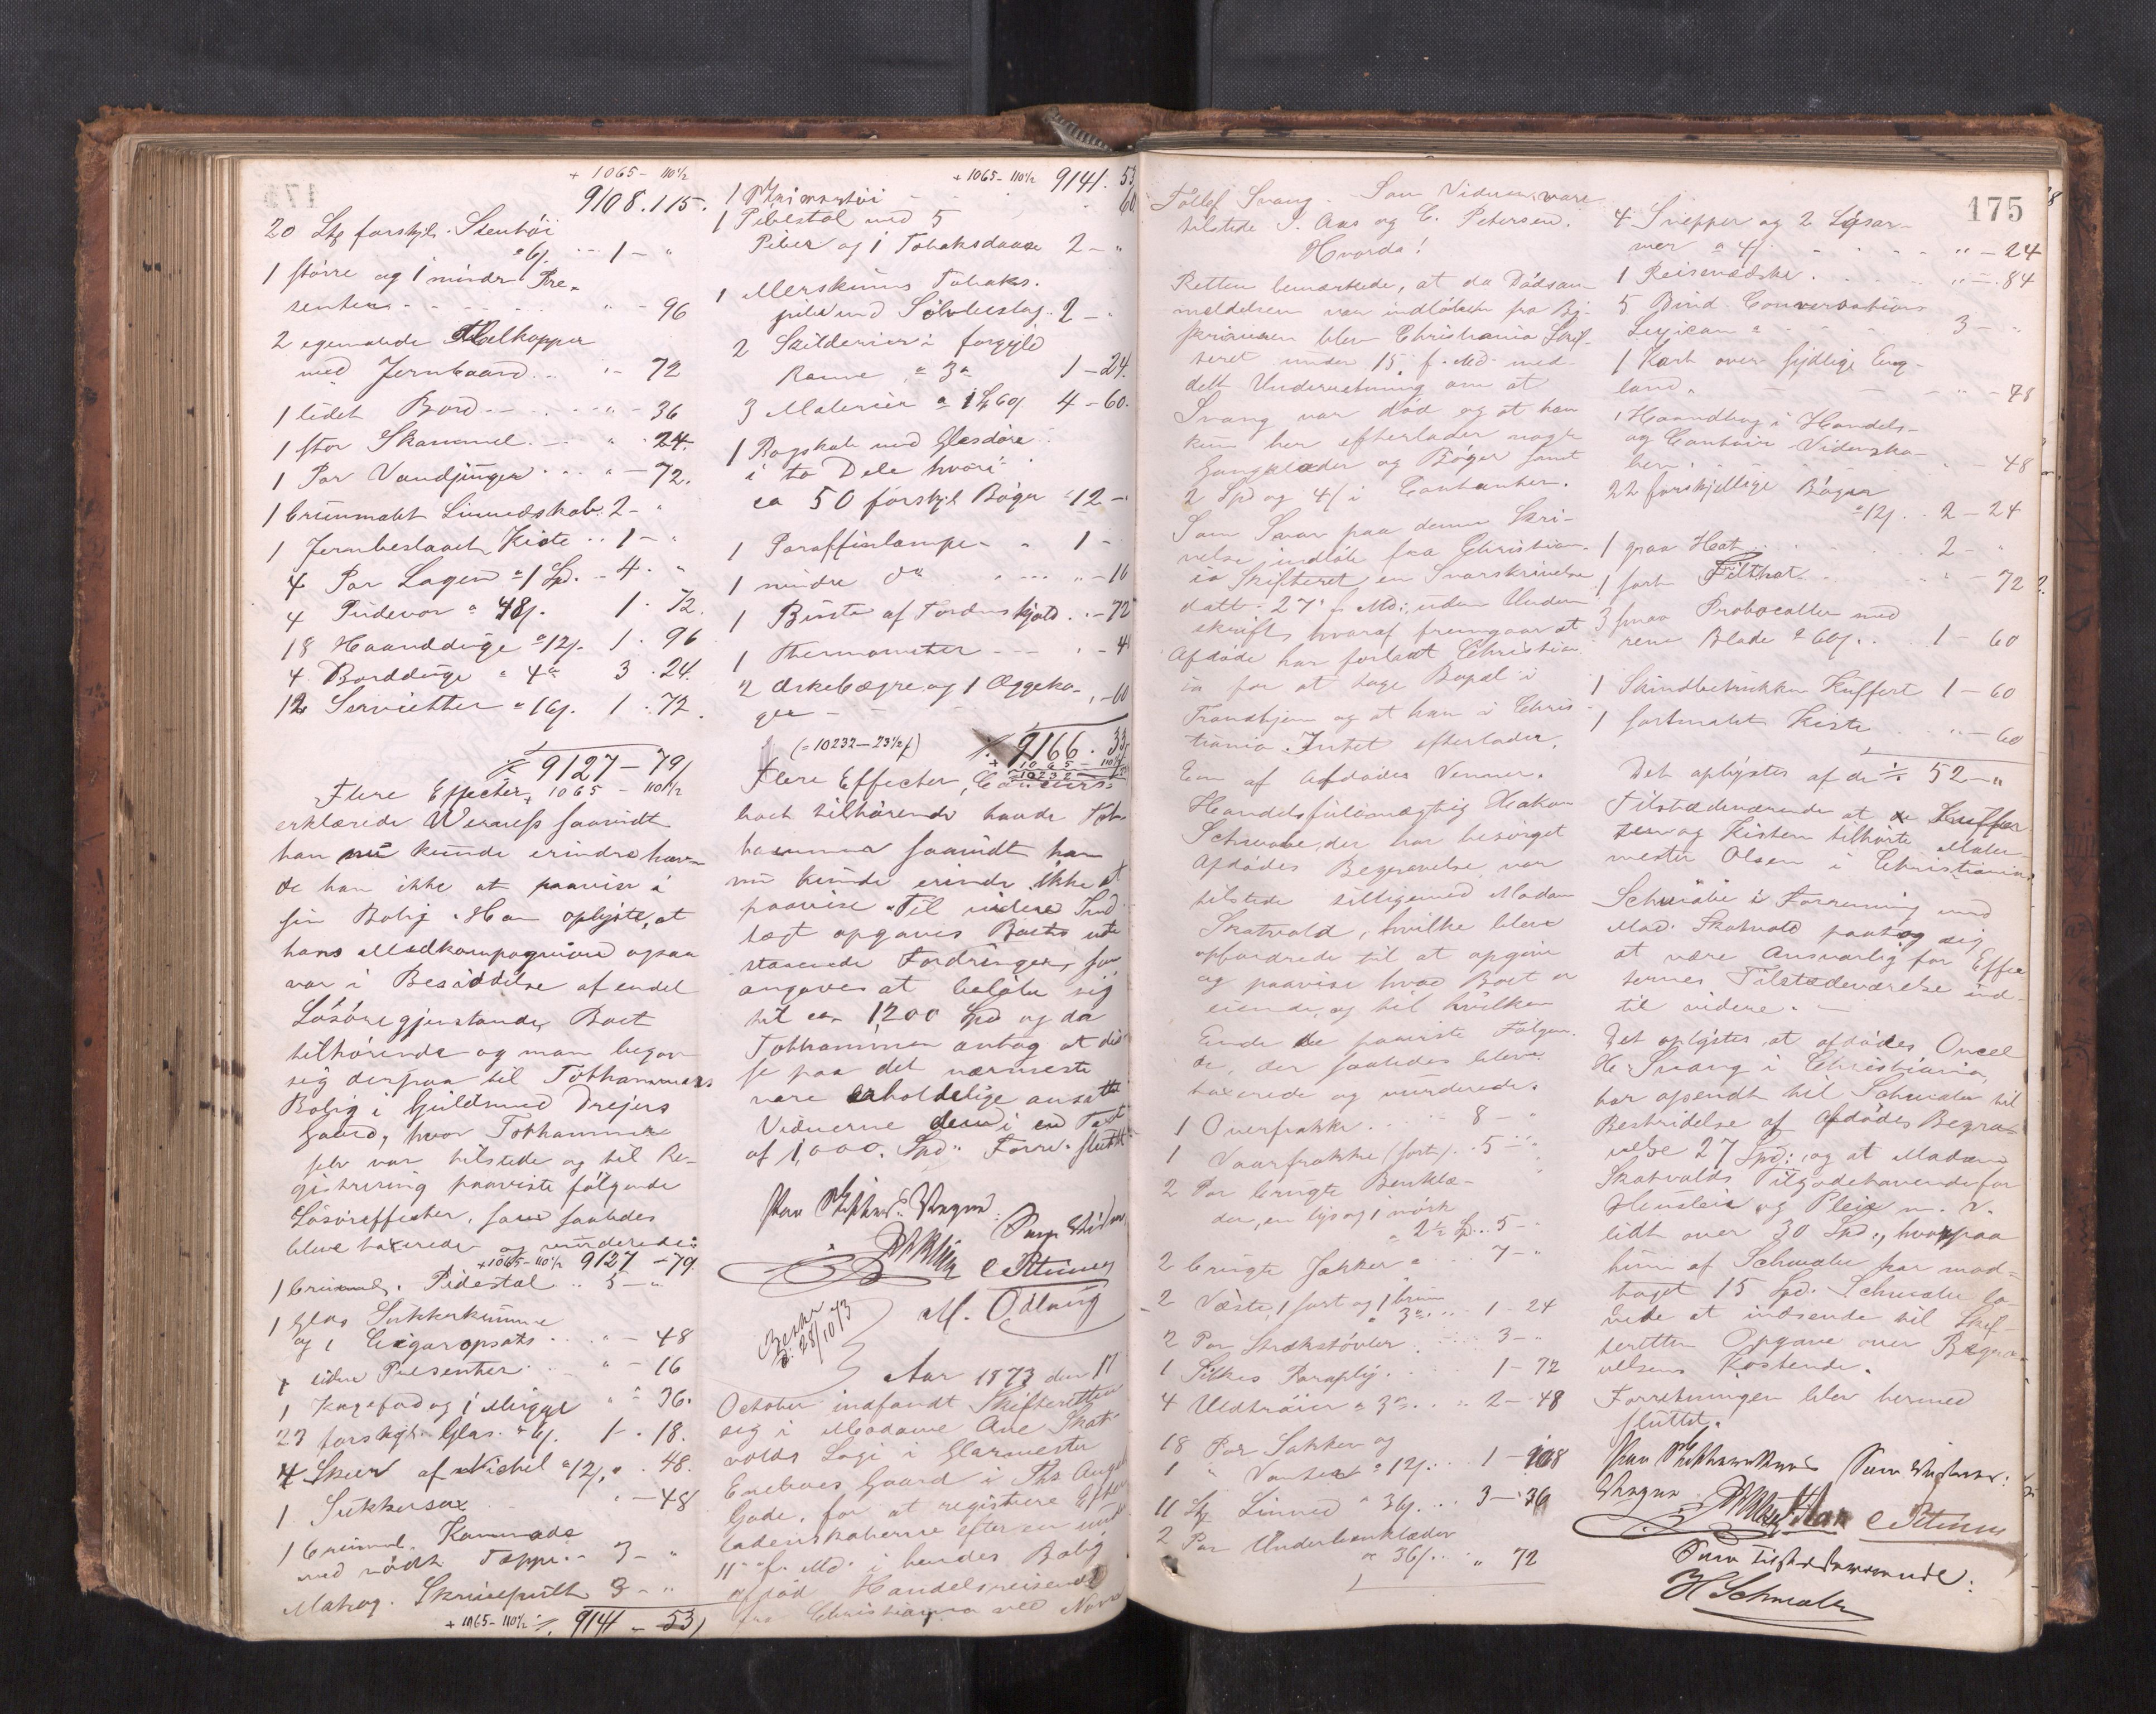 + 1065 - 110½
9108. 115.
20 Stk forskjl. Stentöi
à 6ß. - 1 - "
1 större og 1 mindre Pre-
senter - 96
2 egemalede Melkopper
med Jernbaand - 72
1 lidet Bord - 36
1 stor Skammel - 24.
1 Par Vandjunger - 72.
1 brunmalet Linnedskab 2 - "
1 Jernbeslaaet Kiste 1 - "
4 Par Lagen à 1 Sp. - 4. "
4 Pudevor à 48ß. 1. 72.
18 Haandduge à 12ß. 1. 96
4 Bordduge à 4 3. 24.
12 Servietter à 16ß. 1. 72.
9127 - 79
Flere Effecter + 1065 - 110½
erklærede saavidt
han nu kunde erindre havde
de han ikke at paavise i
sin Bolig. Han oplyste, at
hans Medkompagnon ogsaa
var i Besiddelse af endel
Lösöregjenstande, Boet
tilhörende og man begav
sig derpaa til Tothammers
Bolig i Guldsmed Drejers
Gaard, hvor Tothammer
selv var tilstede og til Re-
gistrering paaviste fölgende
Lösöreffecter, som saaledes
bleve taxerede og vurderede:
+ 1065 - 110½ 9127 - 79.
1 brunmal. Pidestal 3 - "
1 Glas Sukkerkumme
og 1 Cigaropsats " - 48
1 liden Presenter " - 16
1 Kagefad og 1 Mugge " - 36.
23 forskjl. Glas à 6ß. 1 - 18.
4 Skeer af Nichel à 12ß. " 48.
1 Sukkersax " - 48
1 brunmal. Kommode
med rödt Teppe 3 - "
Mahog. Skrivepult 3 - "
+ 1065 - 110½ 9141 - 53
+ 1065 - 110½ 9141. 53
1 60
1 Pibestol med 5
Piber og 1 Tobaksdaase 2 - "
1 Merskums Tobaks-
pibe med Sölvbeslag 2 -
2 Skilderier i forgyld
Ramme à 3 1 - 24.
3 Malerier à 1 Sp 60ß 4 - 60.
1 Bogskab med Glasdöre
i to Dele hvori
ca 50 forskjl. Böger 12 -
1 Paraffinlampe " 1 -
1 mindre do " - 16
1 Büste af Tordenskjold - 72
1 Thermometer - 4
2 Æskebægre og 1 Æggeko-
ger - 60
(= 10232 - 23½ß) 9166. 33
+ 1065 - 110½
10232
Flere Effecter, Concurs-
boet tilhörende havde Tot-
hammer saavidt han
nu kunde erindre ikke at
paavise. Til videre Ind-
tægt opgaves Boets ude
staaende Fordringer, som
angaves at belöbe sig
til ca 1200 Spd og da
Tothammer antog at dis-
se paa det nærmeste
vare erholdelige ansatte
Vidnerne dem i en Taxt
af 1,000. Spd. Forr. sluttet
M. Ödlaug
28/10 73
Aar 1873 den 17
October indfandt Skifteretten
sig i Madame Ane Skat-
volds Logi i Glarmester
Enebaes Gaard i Ths Angels
Gade, for at registrere Efter-
ladenskaberne efter en under
11 f. Md. i hendes Bolig
afdöd Handelsreisende
fra Christiania ved Navn
175
Tollef Svang. Som Vidner vare
tilstede J. Aas og C. Petersen.
Hvorda!
Retten bemærkede, at da Dödsan-
meldelsen var indlöben fra By-
skriveren blev Christiania Skif-
teret under 15 f. Md. med-
delt Underretning om at
Svang var död og at han
kun her efterlader nogle
Gangklæder og Böger samt
2 Spd og 4ß i Contanter.
Som Svar paa denne Skri-
velse indlöb fra Christian-
ia Skifteret en Svarskrivelse
datt. 27 f. Md. uden Under-
skrift, hvoraf fremgaar at
Afdöde har forladt Christian-
ia for at tage Bopæl i
Trondhjem og at han i Chris-
tiania Intet efterlader.
Een af Afdödes Venner,
Handelsfuldmægtig Hakon
Schwabe, der har besörget
Afdödes Begravelse, var
tilstede tilligemed Madam
Skatvold, hvilke blev
opfordrede til at opgive
og paavise hvad Boet er
eiende, og til hvilken
Ende de paaviste Fölgen-
de, der saaledes bleve
taxerede og vurderede:
1 Overfrakke 8 - "
1 Vaarfrakke (sort) 5 "
2 Par brugte Benklæ-
der, en lys og 1 mörk
à 2½ Sp. 5 - "
2 brugte Jakker 7 - "
2 Veste, 1 sort og 1 brun
à 3 1 - 24
2 Par Strækstövler 3 - "
1 Silkes Paraply 1 - 72
4 Uldtröier à 3 2 - 48
18 Par Sokker og
1 " Vanter à 12ß. 1 - 108
11 Stk Linned à 36ß. 3 - 36
2 Par Underbenklæder
à 36ß. " 72
4 Snepper og 2 Lösar-
mer à 4ß. " - 24
1 Reisevædske " - 84
5 Bind Conversations
Lexicon 3 - "
1 Kart over sydlige Eng-
land " - 48
1 Haandbog i Handels-
og Contoir Videnska-
ben - 48
22 forskjellige Böger
à 12ß. 2 - 24
1 graa Hat 2 - "
1 sort Filthat " - 72
3 smaa Brabocaller med
rene Blade à 60ß. 1 - 60
1 Skindbetrukken Kuffert 1 - 60
1 sortmalet Kiste " - 60
52 - "
Det oplystes af de
Tilstedeværende at Kuffer-
ten og Kisten tilhörte Maler-
mester Olsen i Christiania.
Schwabe i Forening med
Mad. Skatvold paatog sig
at være Ansvarlig for Effec-
ternes Tilstedeværelse ind-
til videre.
Det oplystes at afdödes Oncel
H. Svang i Christiania,
har opsendt til Schwabe til
Bestridelse af Afdödes Begra-
velse 27 Spd. og at Madam
Skatvolds Tilgodehavende for
Husleie og Pleie m. v.
lidt over 30 Spd., hvorpaa
hun af Schwabe har mod-
taget 15 Spd. Schwabe lo-
vede at indsende til Skif-
teretten Opgave over Begra-
velsens Kostende.
Forretningen blev hermed
sluttet.
Som Vidner:
Som Tilstedeværende:
H Schwabe